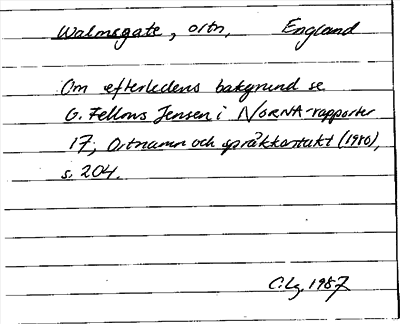 Walmsgate, ortn, England
Om efterledens bakgrund se
G. Fellows Jensen i NORNA-rapporter
17; Ortnamn och språkkontakt (1980),
s. 204.
C.Lg. 1987